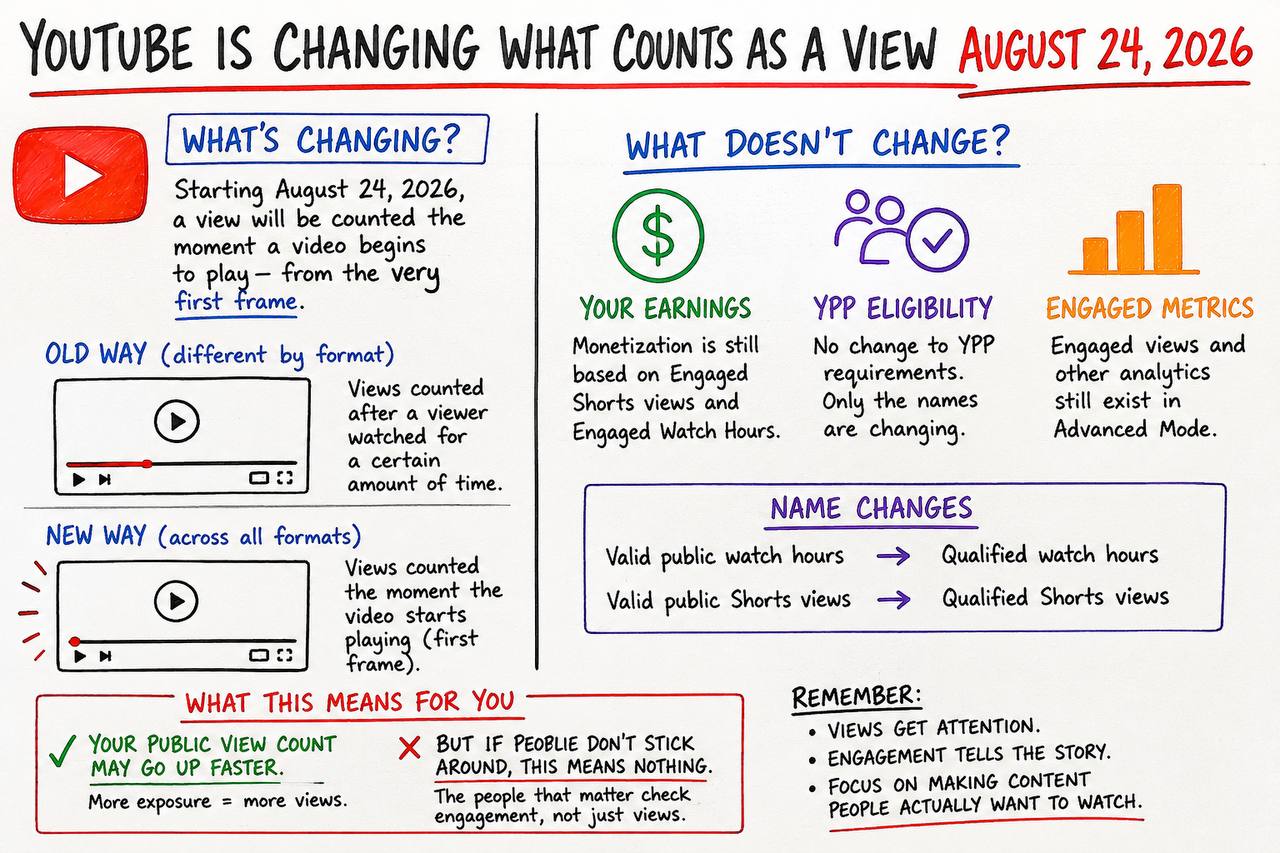 YOUTUBE IS CHANGING WHAT COUNTS AS A VIEW AUGUST 24, 2026
WHAT'S CHANGING?
Starting August 24, 2026,
a view will be counted the
moment a video begins
to play — from the very
first frame.
OLD WAY (different by format)
Views counted
after a viewer
watched for
a certain
amount of time.
NEW WAY (across all formats)
Views counted
the moment the
video starts
playing (first
frame).
WHAT DOESN'T CHANGE?
YOUR EARNINGS
Monetization is still
based on Engaged
Shorts views and
Engaged Watch Hours.
YPP ELIGIBILITY
No change to YPP
requirements.
Only the names
are changing.
ENGAGED METRICS
Engaged views and
other analytics
still exist in
Advanced Mode.
NAME CHANGES
Valid public watch hours → Qualified watch hours
Valid public Shorts views → Qualified Shorts views
WHAT THIS MEANS FOR YOU
YOUR PUBLIC VIEW COUNT
MAY GO UP FASTER.
More exposure = more views.
BUT IF PEOBLIE DON'T STICK
AROUND, THIS MEANS NOTHING.
The people that matter check
engagement, not just views.
REMEMBER:
• VIEWS GET ATTENTION.
• ENGAGEMENT TELLS THE STORY.
• FOCUS ON MAKING CONTENT
PEOPLE ACTUALLY WANT TO WATCH.